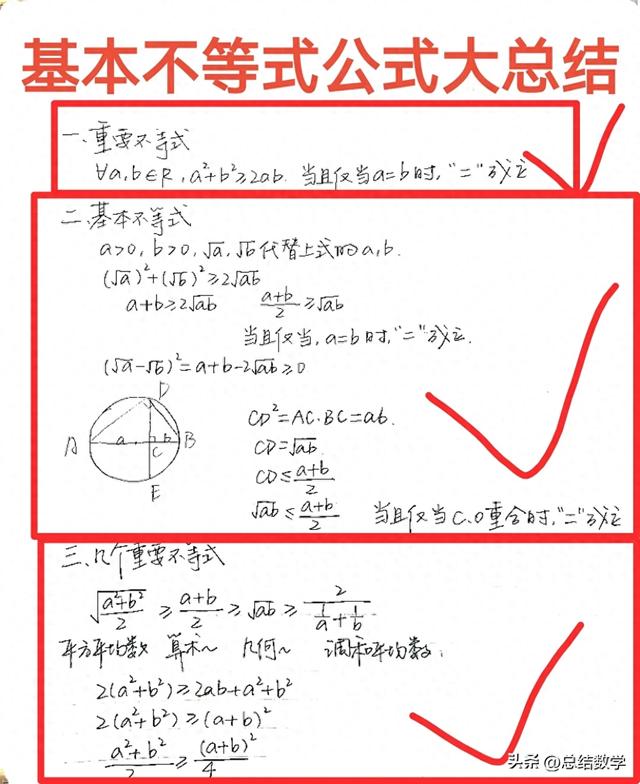 基本不等式公式大总结
一、重要不等式
∀a,b∈R,a²+b²≥2ab. 当且仅当a=b时,"="成立
二、基本不等式
a>0,b>0,√a,√b代替上式的a,b.
(√a)²+(√b)²≥2√ab
a+b≥2√ab (a+b)/2≥√ab
当且仅当,a=b时,"="成立.
(√a-√b)²=a+b-2√ab≥0
D
A a C b B
E
CD²=AC·BC=ab.
CD=√ab
CD≤(a+b)/2
√ab≤(a+b)/2 当且仅当C.O重合时,"="成立
三、几个重要不等式
√((a²+b²)/2) ≥ (a+b)/2 ≥ √ab ≥ 2/(1/a+1/b)
平方平均数 算术~ 几何~ 调和平均数:
2(a²+b²)≥2ab+a²+b²
2(a²+b²)≥(a+b)²
(a²+b²)/2≥(a+b)²/4
头条 @总结数学